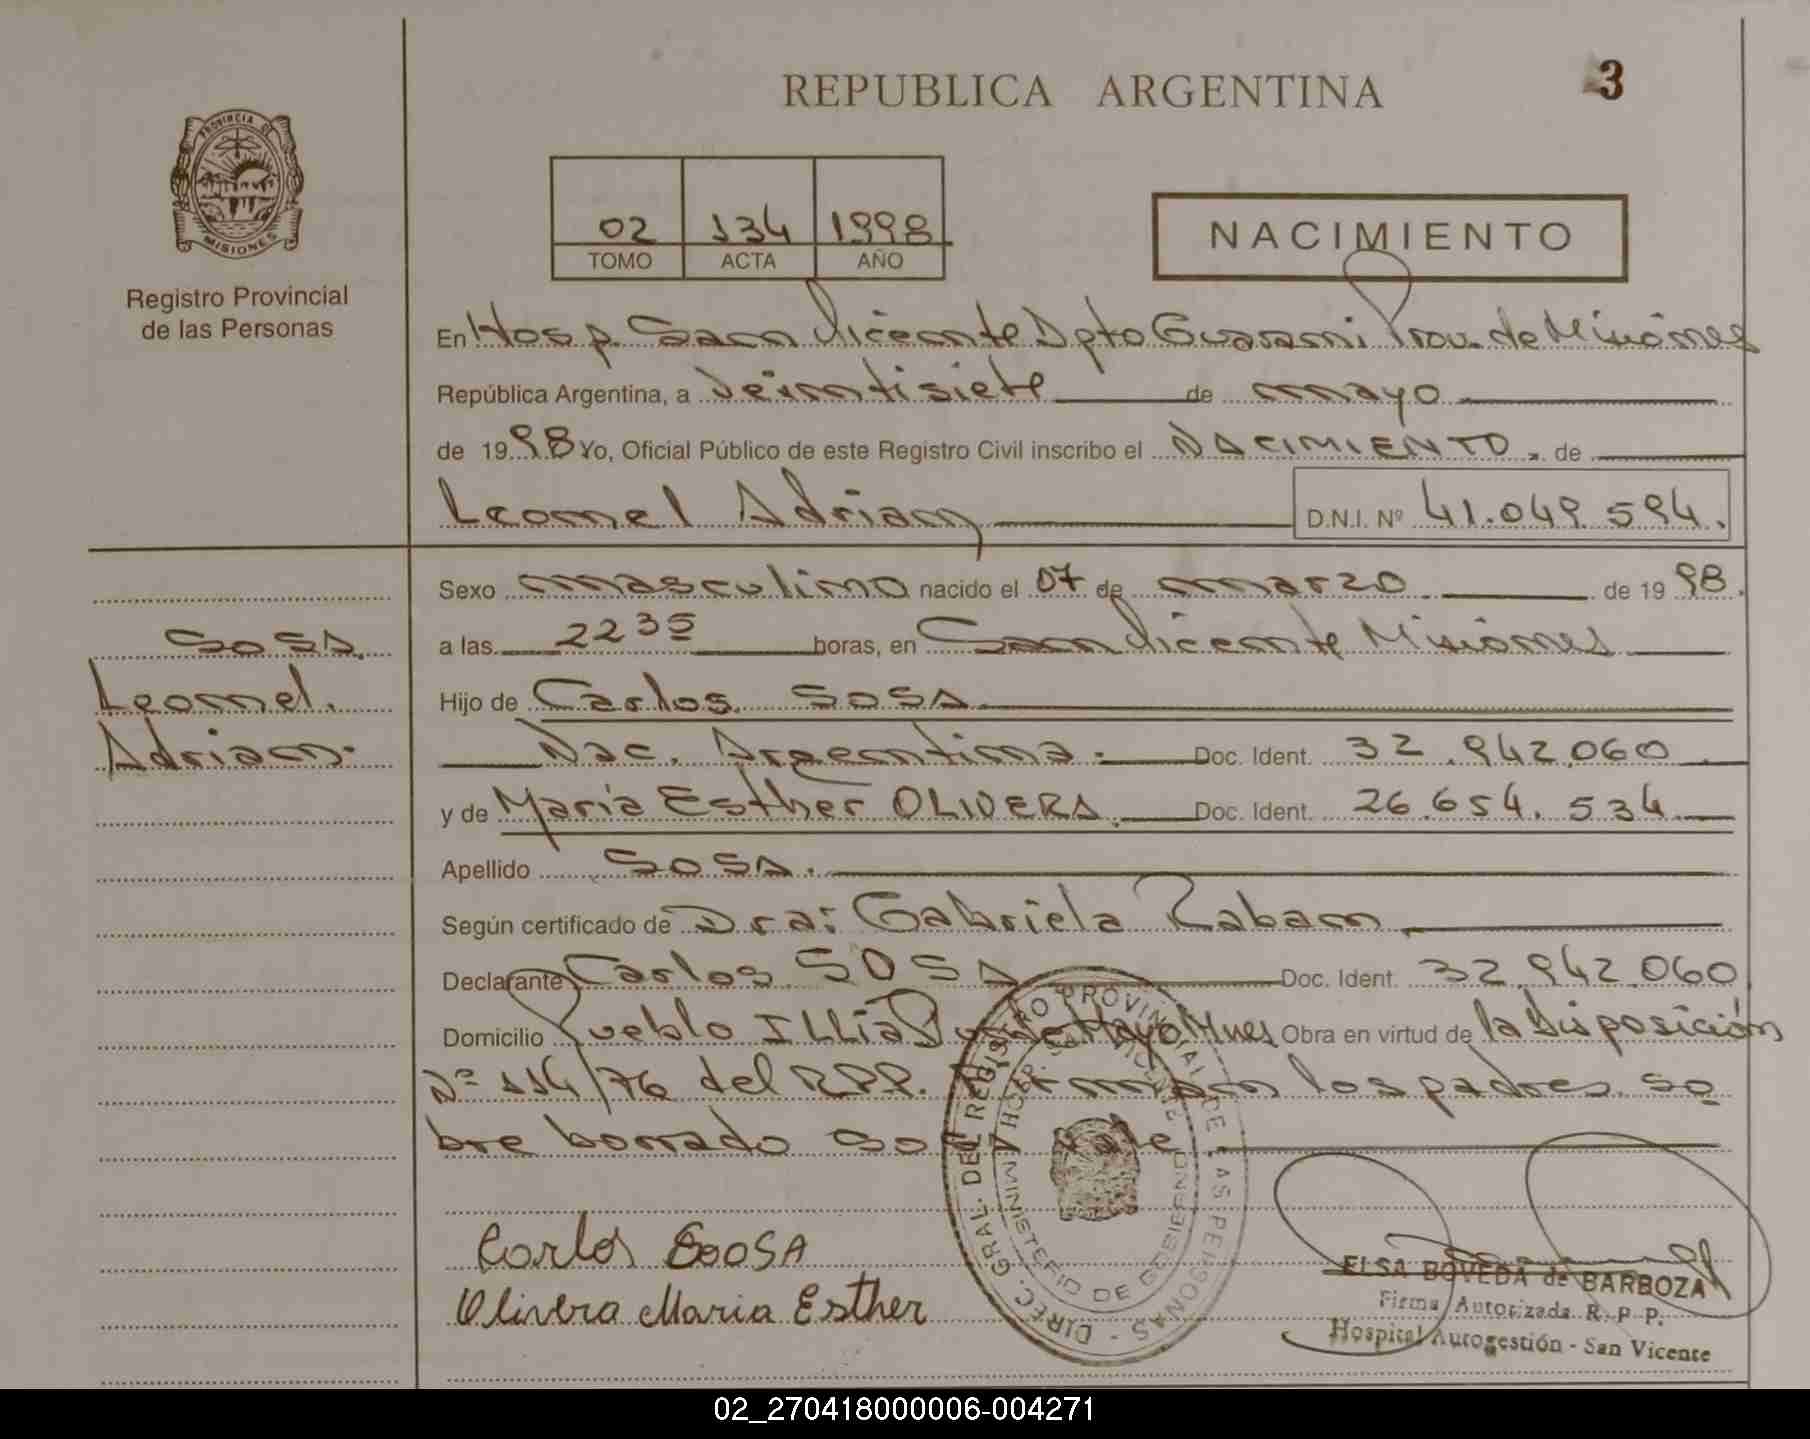 REPUBLICA ARGENTINA
3
PROVINCIA DE
MISIONES
Registro Provincial
de las Personas
02 134 1998
TOMO ACTA AÑO
NACIMIENTO
En Hosp. San Vicente Dpto Guarani Prov. de Misiones
República Argentina, a veintisiete de mayo
de 1998 Yo, Oficial Público de este Registro Civil inscribo el NACIMIENTO. de
Leonel Adrian D.N.I. Nº 41.049.594.
Sexo masculino nacido el 07 de marzo de 1998.
a las 2235 horas, en San Vicente Misiones
Hijo de Carlos SOSA
Nac. Argentina. Doc. Ident. 32.942.060
y de Maria Esther OLIVERA. Doc. Ident. 26.654.534
Apellido SOSA.
Según certificado de Dra: Gabriela Raban
Declarante Carlos SOSA Doc. Ident. 32.942.060
Domicilio Pueblo ILLia de Mayo Mnes Obra en virtud de la Disposición
Nº 114/76 del RPP. Firman los padres. so
bre borrado vale
SOSA.
Leonel.
Adrian.
Carlos SOOSA
Olivera Maria Esther
DIREC. GRAL. DEL REGISTRO PROVINCIAL DE LAS PERSONAS
MINISTERIO DE GOBIERNO
HOSP. SAN VICENTE
ELSA BOVEDA de BARBOZA
Firma Autorizada R. P. P.
Hospital Autogestión - San Vicente
02_270418000006-004271